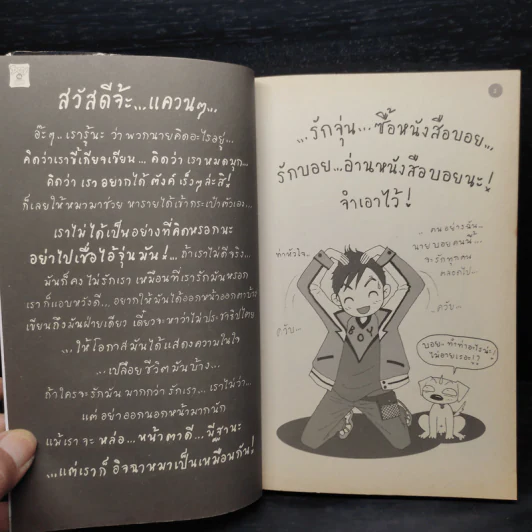 สวัสดีจ้ะ...แควนๆ...
อ๊ะๆ.. เรารู้นะ ว่าพวกนายคิดอะไรอยู่...
คิดว่าเราขี้เกียจเขียน... คิดว่า เราหมดมุก...
คิดว่า เราอยากได้ ตังค์ เร็วๆล่ะสิ!
ก็เลยให้หมามาช่วย หารายได้เข้ากระเป๋าตัวเอง...
เราไม่ได้เป็นอย่างที่คิดหรอกนะ
อย่าไปเชื่อไอ้จุ่นมัน! ถ้าเราไม่ดีจริง...
มันก็คงไม่รักเรา เหมือนที่เรารักมันหรอก
เราก็แอบหวังดี... อยากให้มันได้ออกหน้าออกตาบ้าง
เขียนถึงมันฝ่ายเดียว เดี๋ยวจะหาว่าไม่ประชาธิปไตย
...ให้โอกาสมันได้แสดงความในใจ
...เปลือยชีวิตมันบ้าง...
ถ้าใครจะรักมัน มากกว่ารักเรา... เราไม่ว่า...
แต่ อย่าออกนอกหน้ามากนัก
แม้เราจะ หล่อ... หน้าตาดี... มีฐานะ
...แต่เราก็ อิจฉาหมาเป็นเหมือนกัน!
...รักจุ่น... ซื้อหนังสือบอย...
รักบอย...อ่านหนังสือบอยนะ!
จำเอาไว้!
ท่าหัวใจ..
คนอย่างฉัน..
นายบอยคนนี้...
จะรักทุกคน
ตลอดไป..
ควับ..
ควับ..
BOY
บอย.. ทำท่าอะไรน่ะ
ไม่อายเธอะ!?